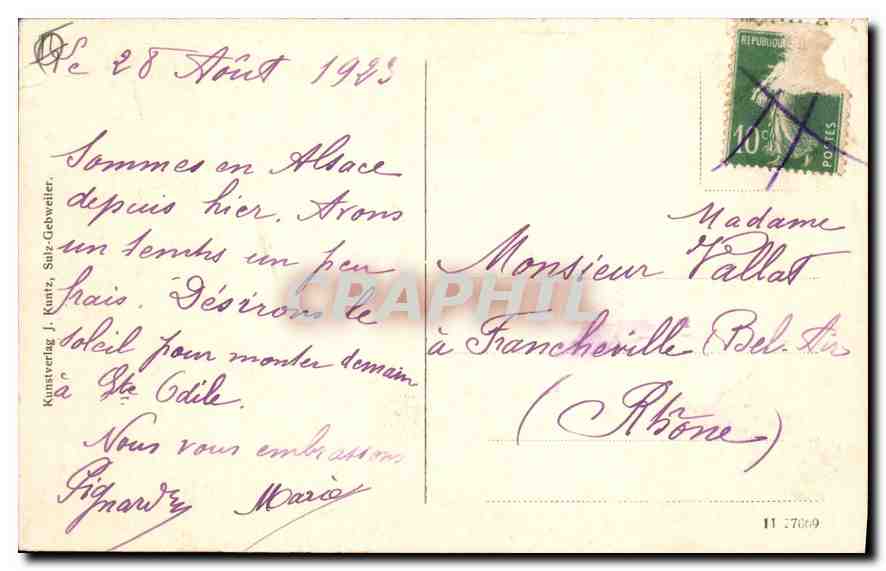 Le 28 Août 1923
Sommes en Alsace
depuis hier. Avons
un temps un peu
frais. Désirons le
soleil pour monter demain
à Ste Odile.
Nous vous embrassons
Marie
Kunstverlag J. Kuntz, Sulz-Gebweiler.
CPAPHIL
REPUBLIQUE
10c
POSTES
Madame
Monsieur Vallat
à Francheville Bel-Air
(Rhône)